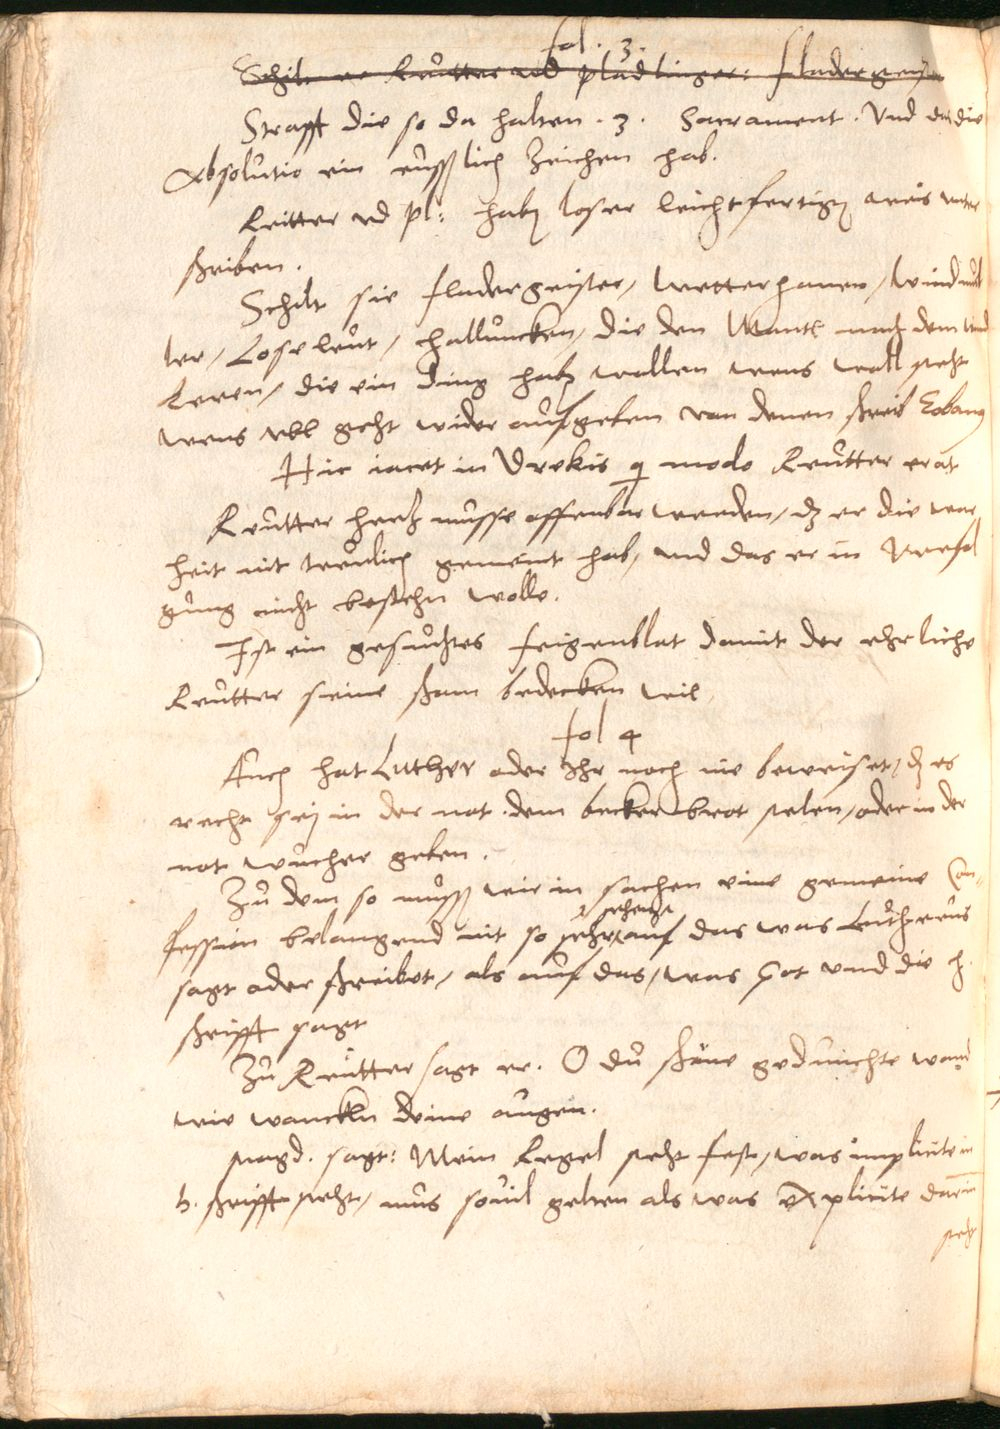 fol. 3.
Schilt er Reütter vnd plädlinger: fladergeyst
Strafft die so da halten .3. Sacrament. Vnd das die
Absolutio ein eüsslich Zeichen hab.
Reitter vnd pl: haben loser leichtfertigen weis vnter
schriben.
Schilt sie fladergeister, Wetterhanen, Windmül
ler, Lose leüt, halluncken, die den Mantl nach dem wind
keren, die ein ding haben wollen wens woll steht
wens vbl geht wider aufgeben von denen schreib Eobanus
Hic iacet in Drekis qui modo Reütter erat
Reütter hertz müsse offenbar werden, das er die war
heit nit treulich gemeint hab, vnd das er in verfol
gung nicht bestehn wolle.
Ist ein gesuchtes feigenblat damit der ehrliche
Reütter seine scham bedecken will
fol 4
Auch hat Luther oder Ihr noch nie beweiset, das es
recht sey in der not dem becken brot stelen, oder in der
not wucher geben.
Zu dem so muss wir in sachen eine gemeine Con-
fession belangend nit so sehr auf das was Lutherus
sagt oder schreibet, als auf das, was Got vnd die h.
schrifft sagt
Zu Reütter sagt er. O du schöne getünchte wand
wie wanckeln deine augen.
Magd. sagt: Mein Regel steht fest, was implicite in
h. schrifft steht, mus souil gelten als was explicite darin
steht